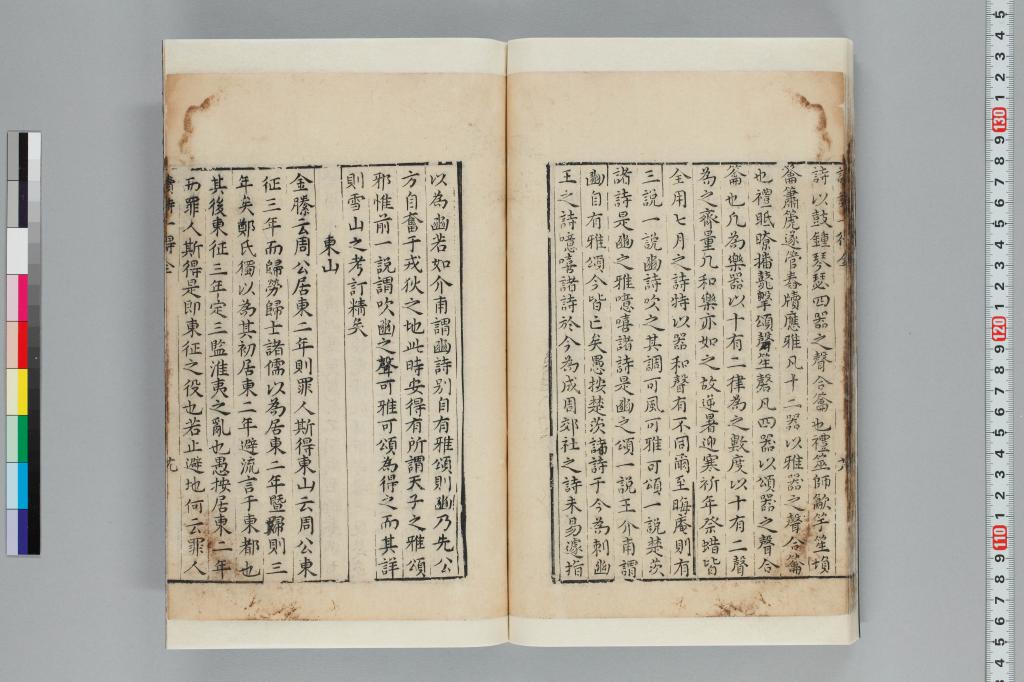 詩以鼓鍾琴瑟四器之聲合籥也禮笙師龡竽笙塤
籥簫篪篴管舂牘應雅凡十二器以雅器之聲合籥
也禮眡瞭播鼗擊頌磬笙磬凡四器以頌器之聲合
籥也凡為樂器以十有二律為之數度以十有二聲
為之齊量凡和樂亦如之故逆暑迎寒祈年祭蜡皆
全用七月之詩特以器和聲有不同爾至晦庵則有
三說一說豳詩吹之其調可風可雅可頌一說楚茨
諸詩是豳之雅噫嘻諸詩是豳之頌一說王介甫謂
豳自有雅頌今皆亡矣愚按楚茨諸詩于今為刺幽
王之詩噫嘻諸詩於今為成周郊社之詩未易遽指
以為豳若如介甫謂豳詩別自有雅頌則豳乃先公
方自奮于戎狄之地此時安得有所謂天子之雅頌
邪惟前一說謂吹豳之聲可雅可頌為得之而其詳
則雪山之考訂精矣
東山
金縢云周公居東二年則罪人斯得東山云周公東
征三年而歸勞歸士諸儒以為居東二年暨歸則三
年矣鄭氏獨以為其初居東二年避流言于東都也
其後東征三年定三監淮夷之亂也愚按居東二年
而罪人斯得是即東征之役也若止避地何云罪人